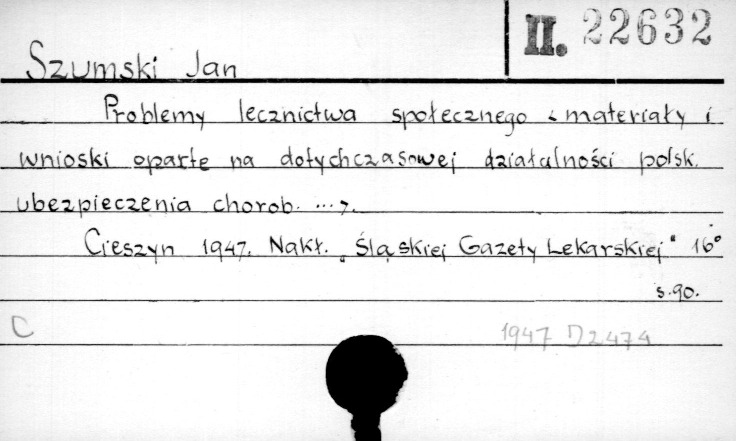 II. 22632
Szumski Jan
Problemy lecznictwa społecznego < materiały i
wnioski oparte na dotychczasowej działalności polsk.
ubezpieczenia chorob. ...>.
Cieszyn 1947. Nakł. „Śląskiej Gazety Lekarskiej" 16°
s.90.
C 1947 D2474